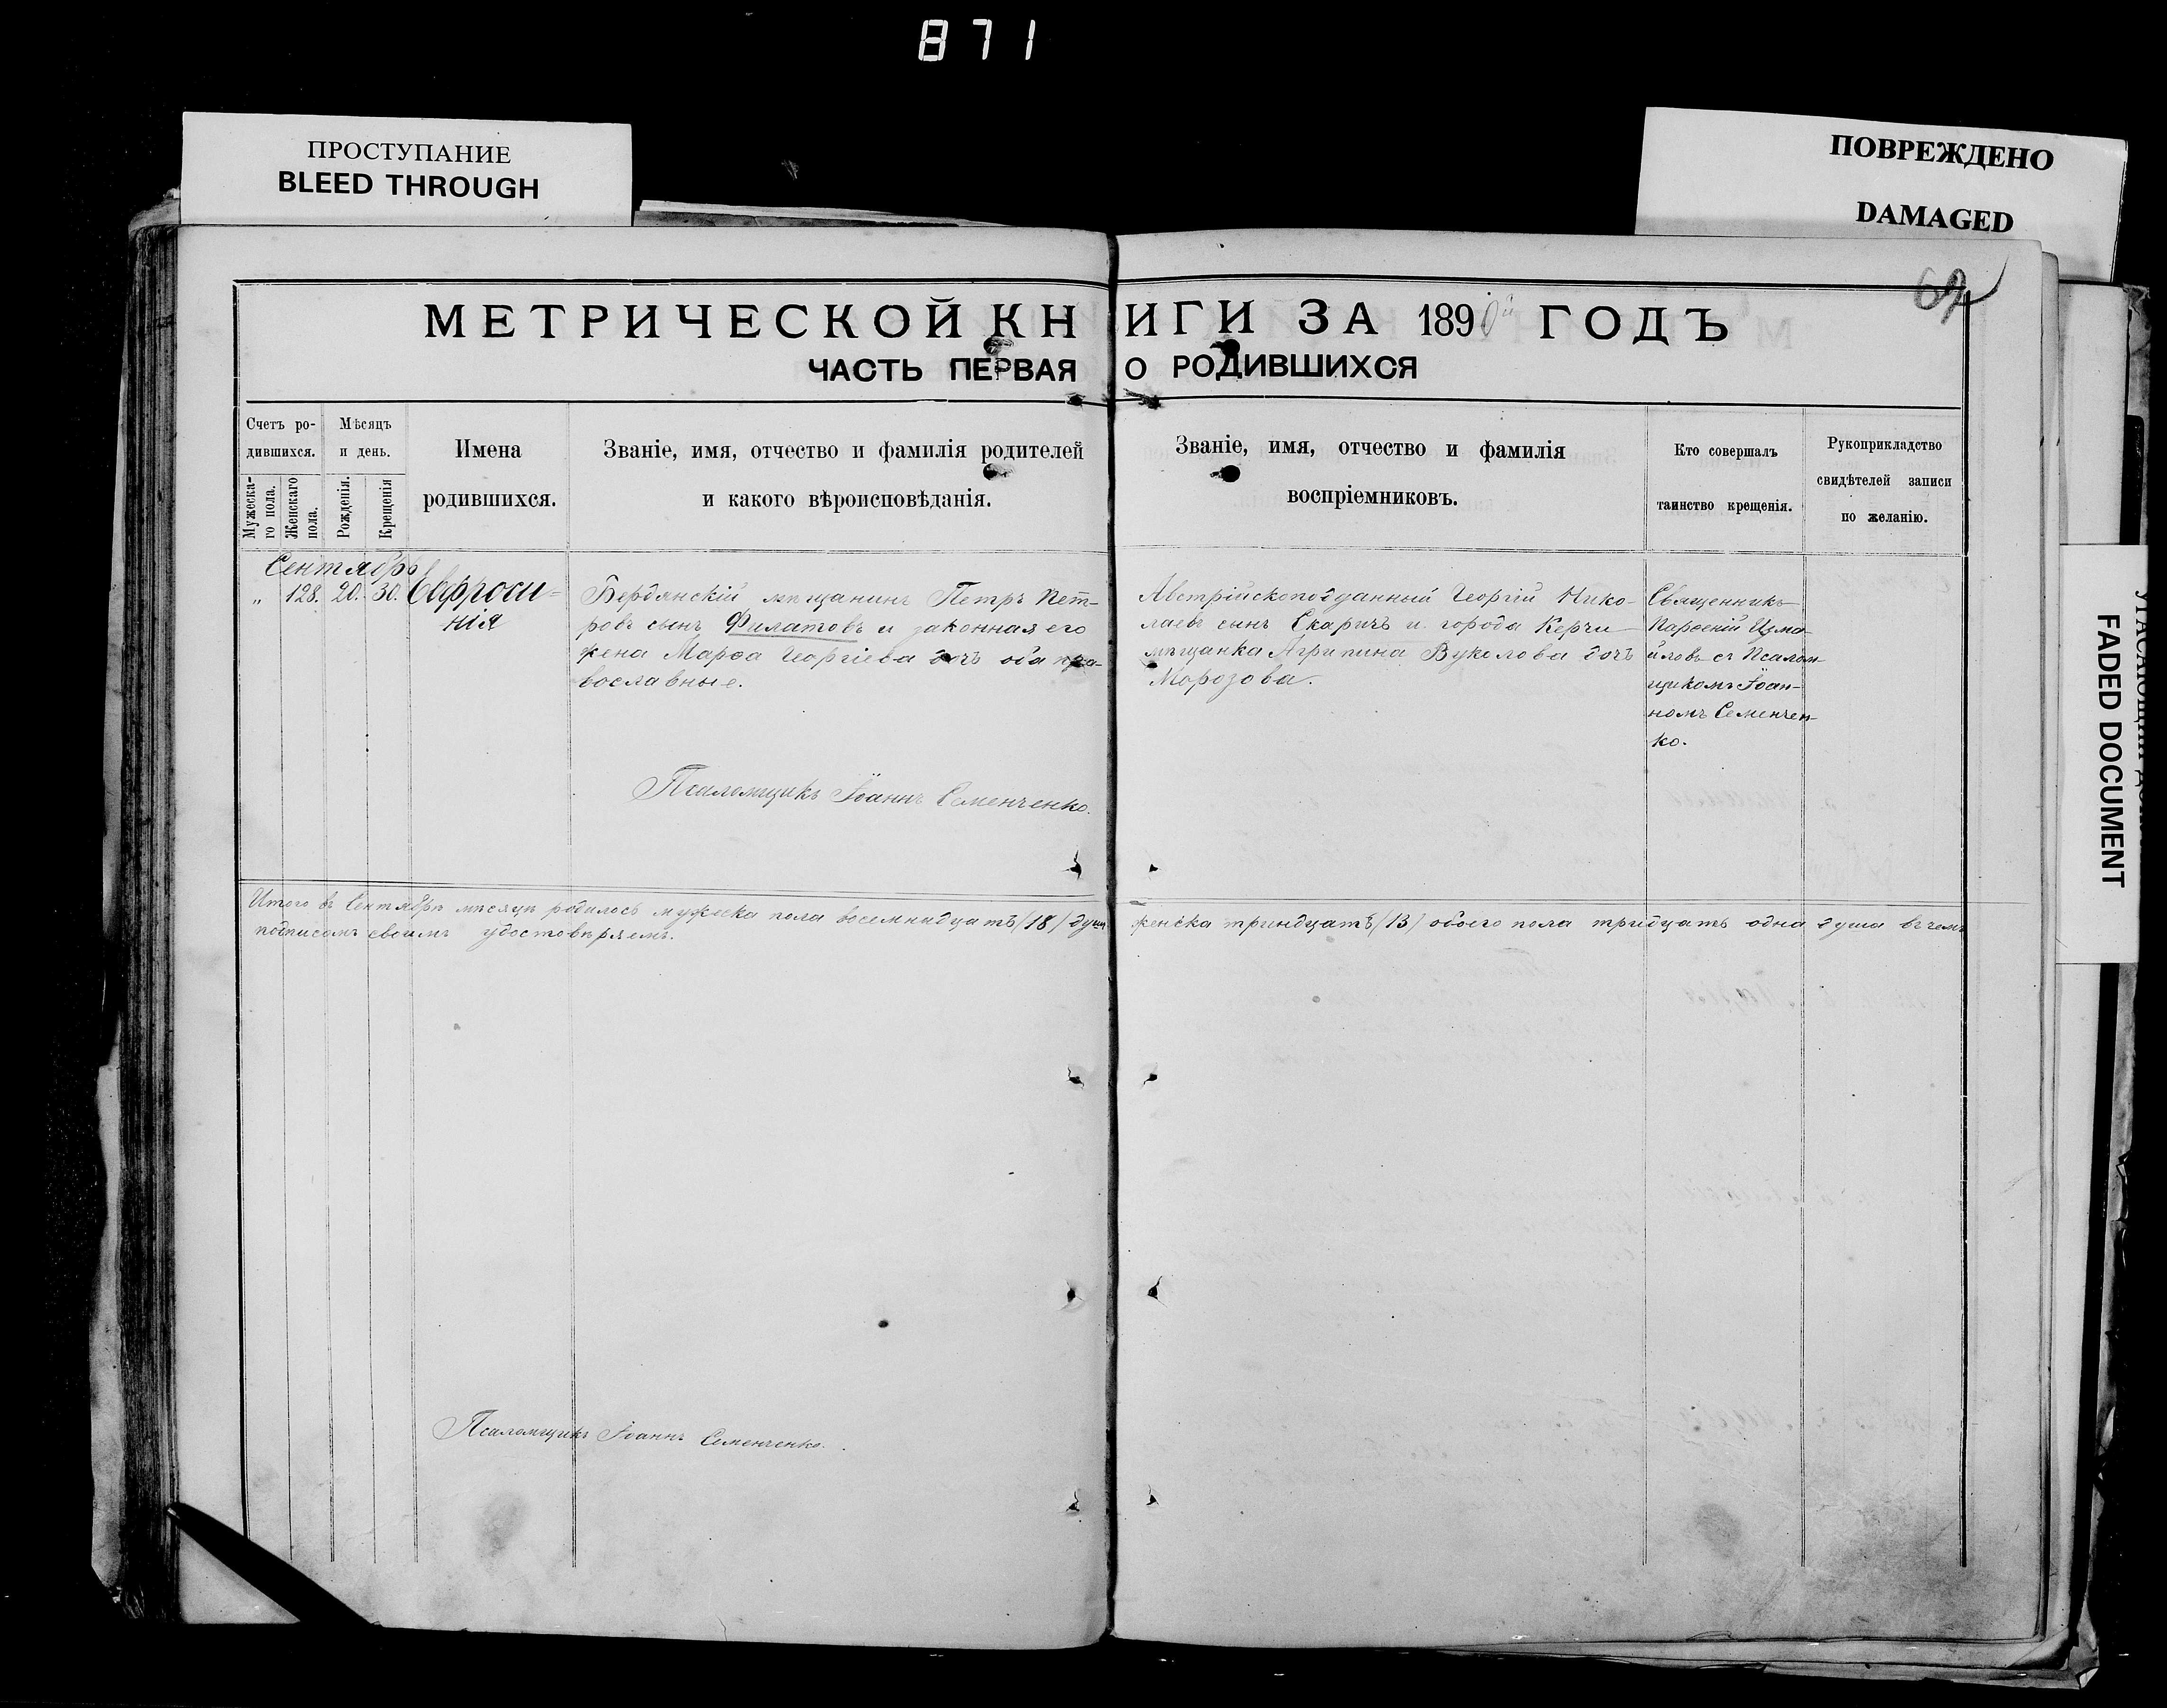 871
ПРОСТУПАНИЕ
BLEED THROUGH
ПОВРЕЖДЕНО
DAMAGED
FADED DOCUMENT
62
МЕТРИЧЕСКОЙ КНИГИ ЗА 1890й ГОДЪ
ЧАСТЬ ПЕРВАЯ О РОДИВШИХСЯ
Счетъ ро-
дившихся.
Мужеска-
го пола.
Женскаго
пола.
Мѣсяцъ
и день.
Рожденія.
Крещенія
Имена
родившихся.
Званіе, имя, отчество и фамилія родителей
и какого вѣроисповѣданія.
Званіе, имя, отчество и фамилія
воспріемниковъ.
Кто совершалъ
таинство крещенія.
Рукоприкладство
свидѣтелей записи
по желанію.
Сентябрь
„ 128. 20. 30. Евфроси-
нія
Бердянскій мѣщанинъ Петръ Пет-
ровъ сынъ Филатовъ и законная его
жена Марѳа Георгіева дочь оба пра-
вославные.
Псаломщикъ Іоаннъ Семенченко.
Австрійскоподданный Георгій Нико-
лаевъ сынъ Скаричъ и города Керчи
мѣщанка Агрипина Вуколова дочь
Морозова.
Священникъ
Парѳеній Изма-
йловъ съ Псалом-
щикомъ Іоан-
номъ Семенчен-
ко.
Итого въ Сентябрѣ мѣсяцѣ родилось мужеска пола восемнадцать (18) душъ женска тринадцать (13) обоего пола тридцать одна душа въ чемъ
подписомъ своимъ удостовѣряемъ.
Псаломщикъ Іоаннъ Семенченко.